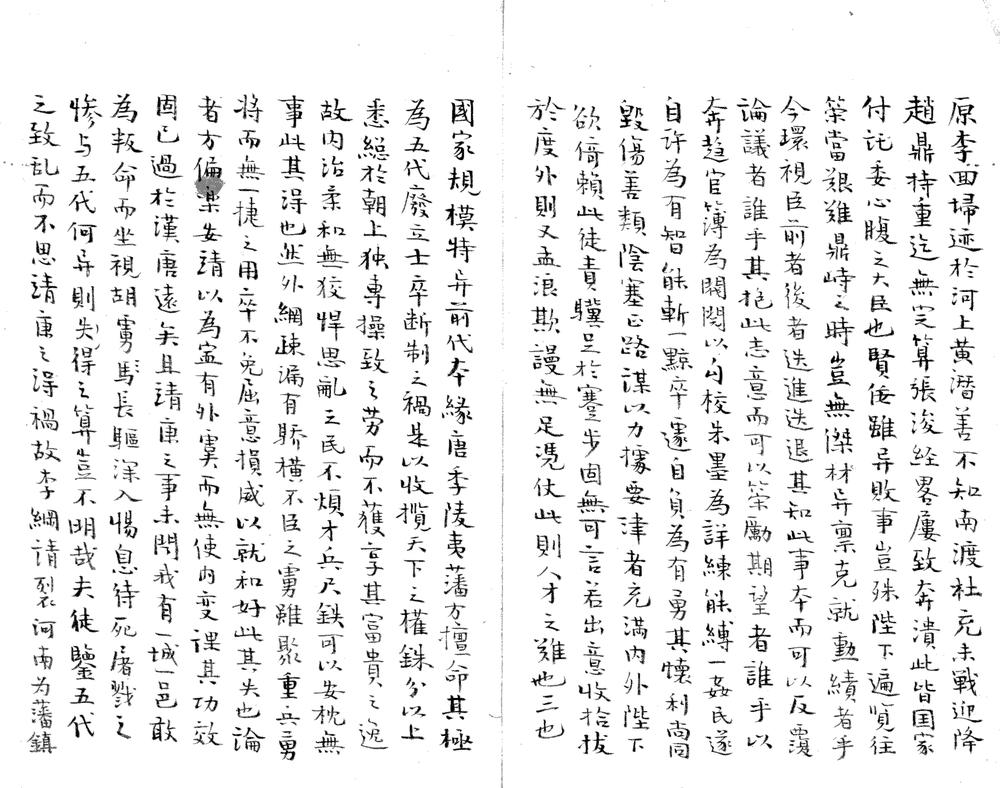 原李回掃迹於河上黄潛善不知南渡杜充未戰迎降
趙鼎持重迄無定算張浚経畧屢致奔潰此皆国家
付託委心腹之大臣也賢佞雖异敗事豈殊陛下遍览往
策當艱難鼎峙之時豈無傑材异禀克就勳績者乎
今環視臣前者後者迭進迭退其知此事夲而可以反覆
論議者誰乎其抱此志意而可以䇿勵期望者誰乎以
奔趍官簿為閥閱以勾校朱墨為詳練能縛一姦民遂
自许為有智能斬一黥卒遽自負為有勇其懷利尚同
毀傷善類陰塞正路謀以力攘要津者充滿内外陛下
欲倚賴此徒責驥足於蹇步固無可言若出意收拾拔
於度外則又孟浪欺謾無足憑仗此則人才之难也三也
國家規模特异前代夲緣唐季陵夷藩方擅命其極
為五代廢立士卒断制之禍是以收攬天下之權銖分以上
悉総於朝上独專操致之劳而不獲享其富貴之逸
故内治柔和無狡悍思亂之民不煩才兵尺鉄可以安枕無
事此其淂也然外網疎漏有驕横不臣之虜雖聚重兵勇
將而無一捷之用卒不免屈意損威以就和好此其失也論
者方偏樂安靖以為宜有外寞而無使内变課其功效
固已過於漢唐遠矣且靖康之事未聞我有一城一邑敢
為叛命而坐視胡虜馬長驅深入惕息待死屠戮之
惨与五代何异則失得之算豈不明哉夫徒鑒五代
之致乱而不思靖康之淂禍故李綱請裂河南为藩鎮